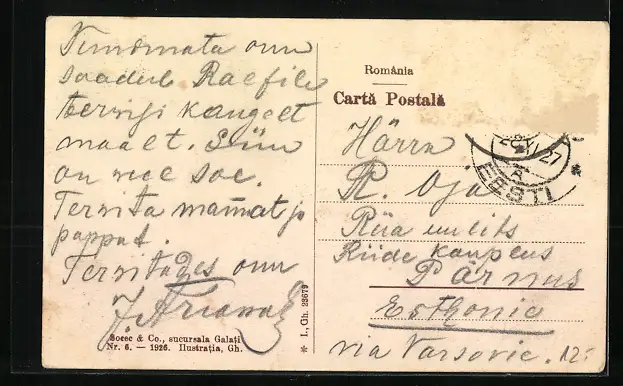 onn
saadud
tervisi kaugelt
maalt. Siin
on veel soe.
Tervita mamat ja
pappat.
Tervitades onn
Socec & Co., sucursala Galati
Nr. 6. — 1926. Ilustrația, Gh.
* I., Gh. 28679
România
Cartă Postală
Härra
R. Oja
Rüa uulits
Riide kauplus
Pärnus
Esthonie
via Varsovie.
27
EESTI